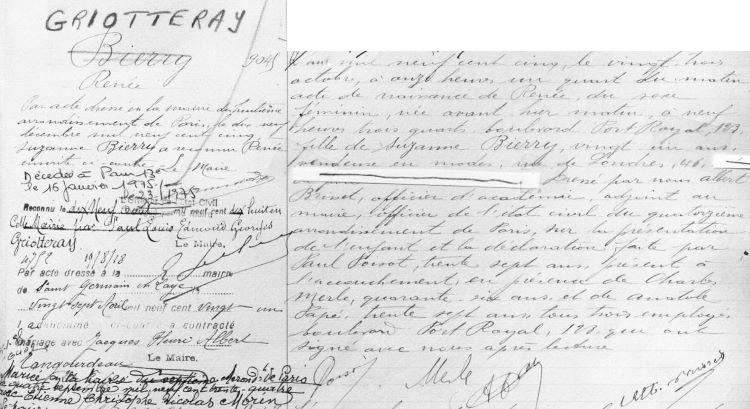 GRIOTTERAY
Bierry
9045
Renée
Par acte dressé en la mairie du huitième
arrondissement de Paris, le dix neuf
décembre mil neuf cent cinq,
Suzanne Bierry a reconnu Renée
inscrite ci-contre. Le Maire
Décédée à Paris 13e
le 16 janvier 1975
23 1975
L'officier de l'Etat Civil
Reconnu le dix Neuf Août mil neuf cent dix huit en
Cette Mairie par Paul Louis Edmond Georges
Griotteray
Le Maire,
10/8/18
Par acte dressé à la mairie
de Saint Germain en Laye
Vingt Sept Août mil neuf cent Vingt un
a contracté
mariage avec Jacques Henri Albert
Langourdeau
Le Maire,
Mariée en la mairie du septième arrond. de Paris
le quatre septembre mil neuf cent trente-quatre
avec Etienne Christophe Nicolas Morin
L'an mil neuf cent cinq, le vingt trois
octobre, à onze heures un quart du matin
acte de naissance de Renée, du sexe
féminin, née avant hier matin, à neuf
heures trois quarts boulevard Port Royal, 123
fille de Suzanne Bierry, vingt un ans,
vendeuse en modes, rue de Londres, 46,
Dressé par nous Albert
Brinet, officier d'académie, adjoint au
maire, officier de l'état civil du quatorzième
arrondissement de Paris, sur la présentation
de l'enfant et la déclaration faite par
Paul Poisot, trente sept ans, présent à
l'accouchement, en présence de Charles
Merle, quarante six ans, et de Anatole
Papé, trente sept ans, tous trois employés,
boulevard Port Royal, 123, qui ont
signé avec nous après lecture
Poisot
Merle